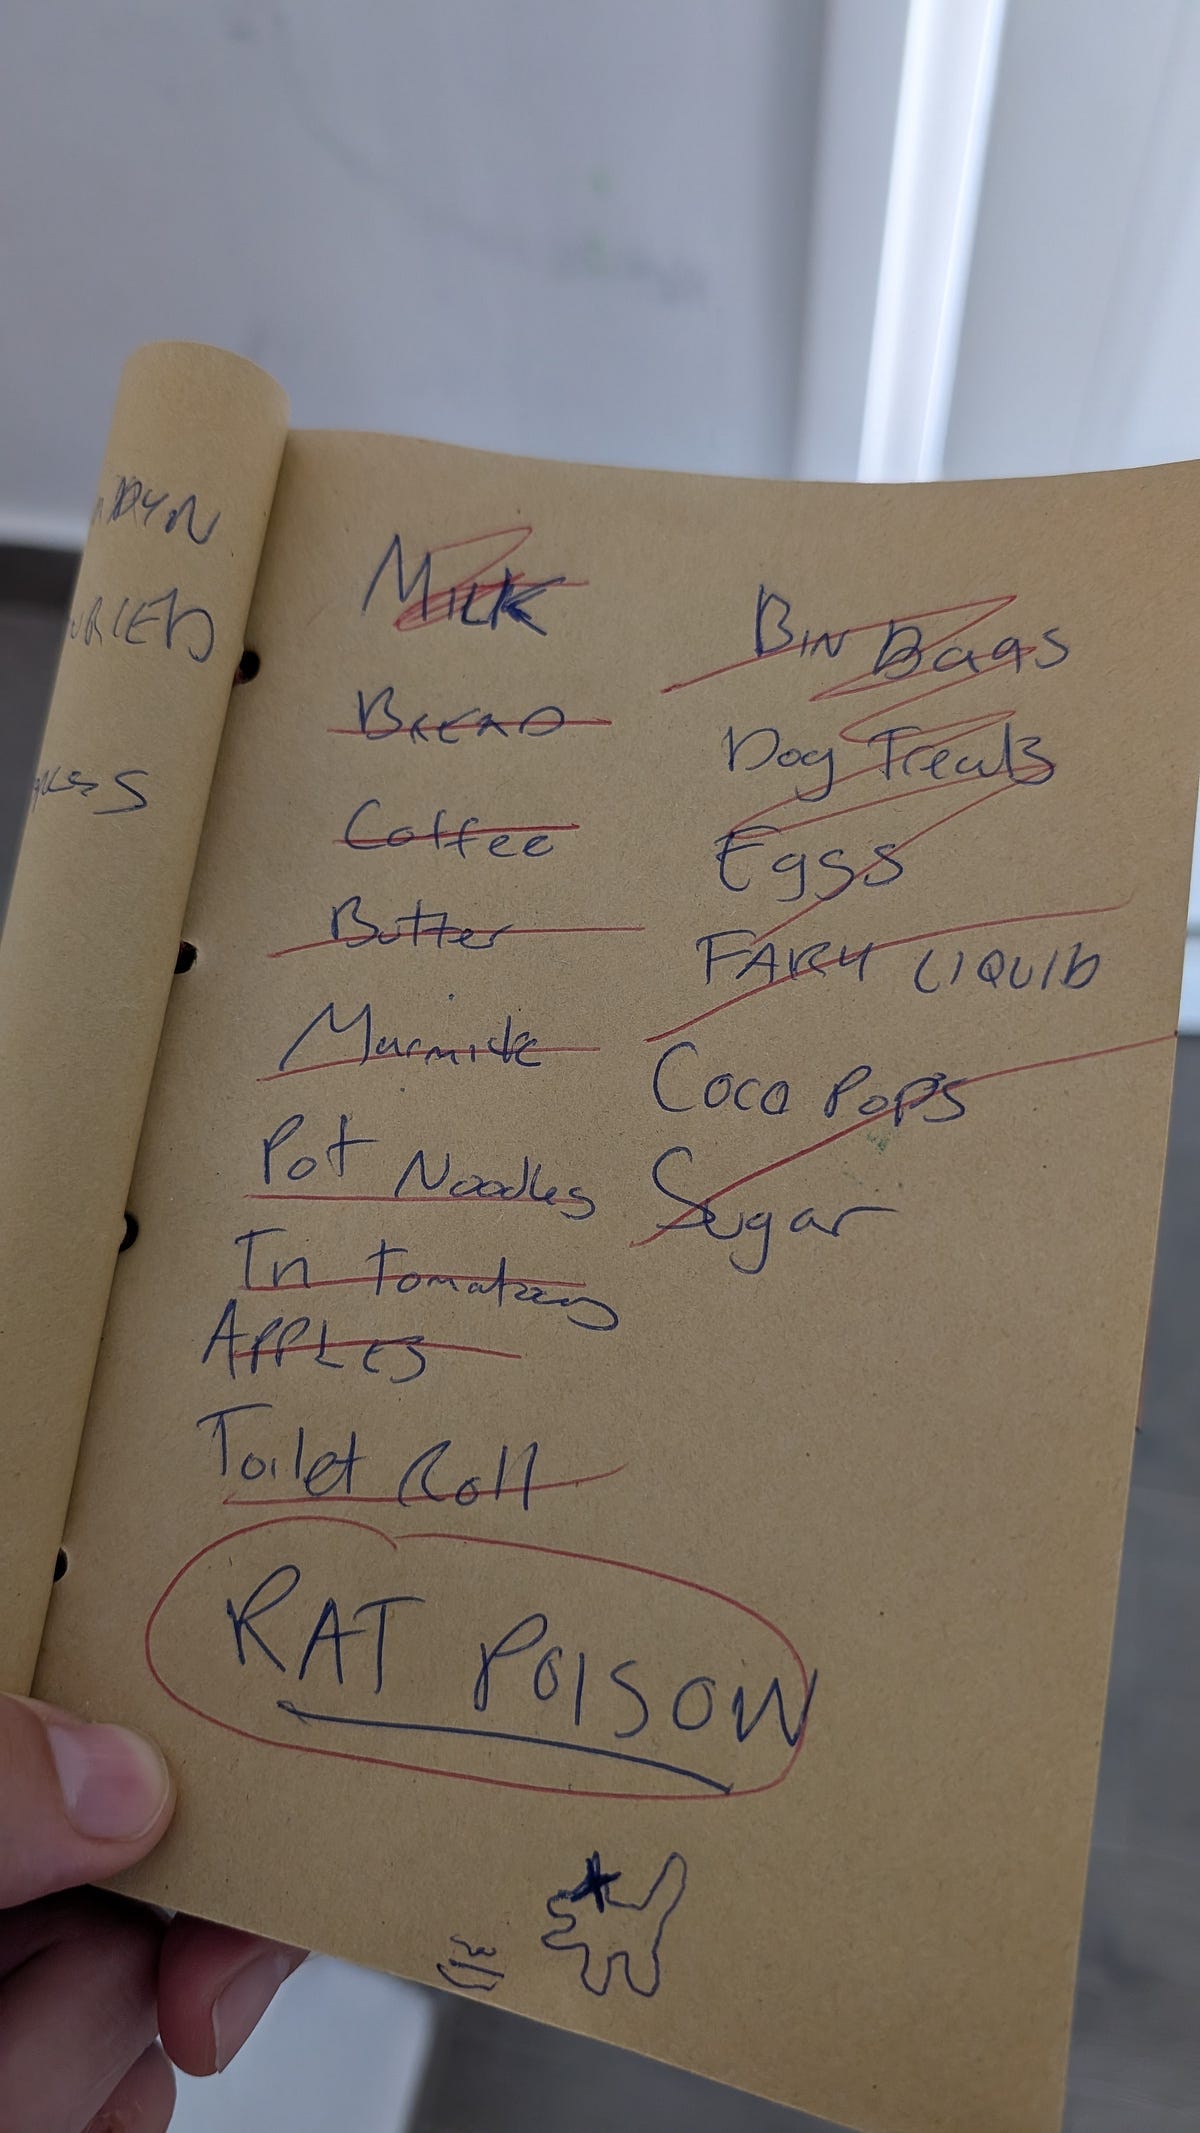 MILK
BREAD
Coffee
Butter
Marmite
Pot Noodles
Tn tomatoes
APPLES
Toilet Roll
RAT POISON
BIN BagS
Dog Treats
Eggs
FARY LIQUID
Coco PoPS
Sugar